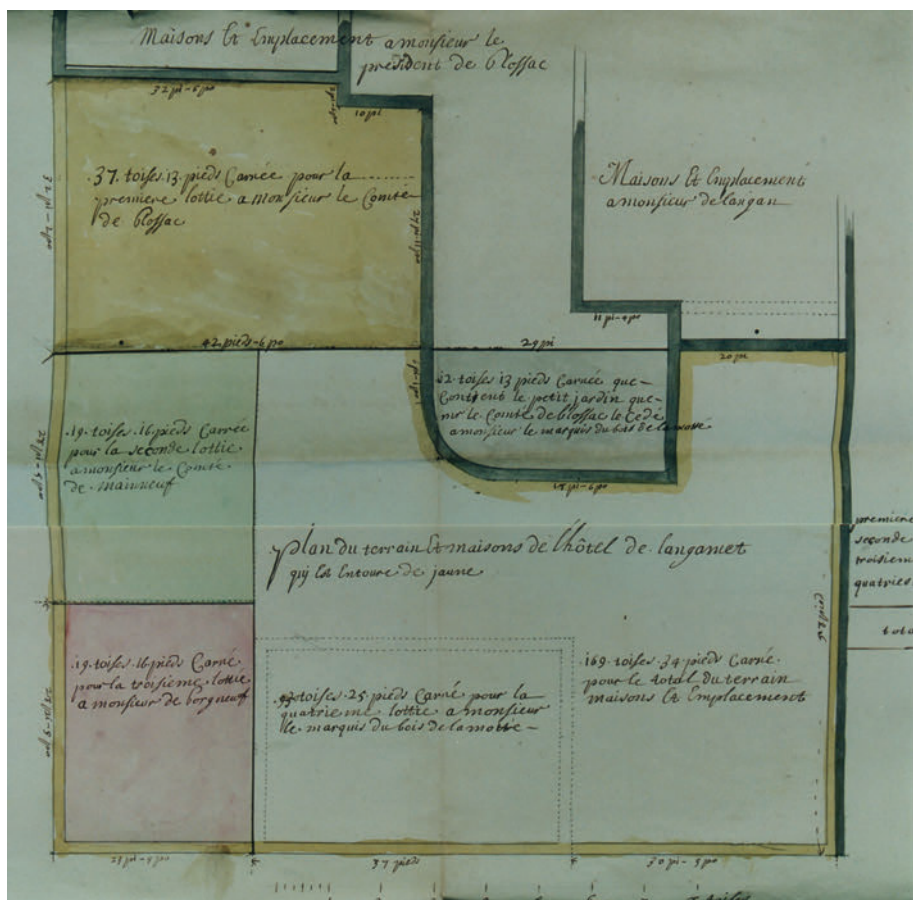 Maisons Et Emplacement a monsieur le
president de Blossac
32 pi-6 po
10 pi
.37. toises .13. pieds Carrée pour la
premiere lottie a monsieur le Comte
de Blossac
27 pi-11 po
Maisons Et Emplacement
a monsieur de langan
11 pi-4 po
42 pieds-6 po
29 pi
20 pi
12. toises 13 pieds Carrée que
Contient le petit jardin que
mr le Comte de blossac le Cedé
a monsieur le marquis du bois de la motte
.19. toises .16. pieds Carrée
pour la seconde lottie
a monsieur le Comte
de mainneuf
plan du terrain Et maisons de l'hôtel de langamet
qui Est Entoure de jaune
premiere
seconde
troisieme
quatries
tota
.19. toises .16 pieds Carré
pour la troisieme lottie
a monsieur de borgneuf
toises .25. pieds Carré pour la
quatrieme lottie a monsieur
le marquis du bois de la motte
169. toises .34. pieds Carré
pour le total du terrain
maisons Et Emplacement
37 pieds
30 pi-9 po
toises